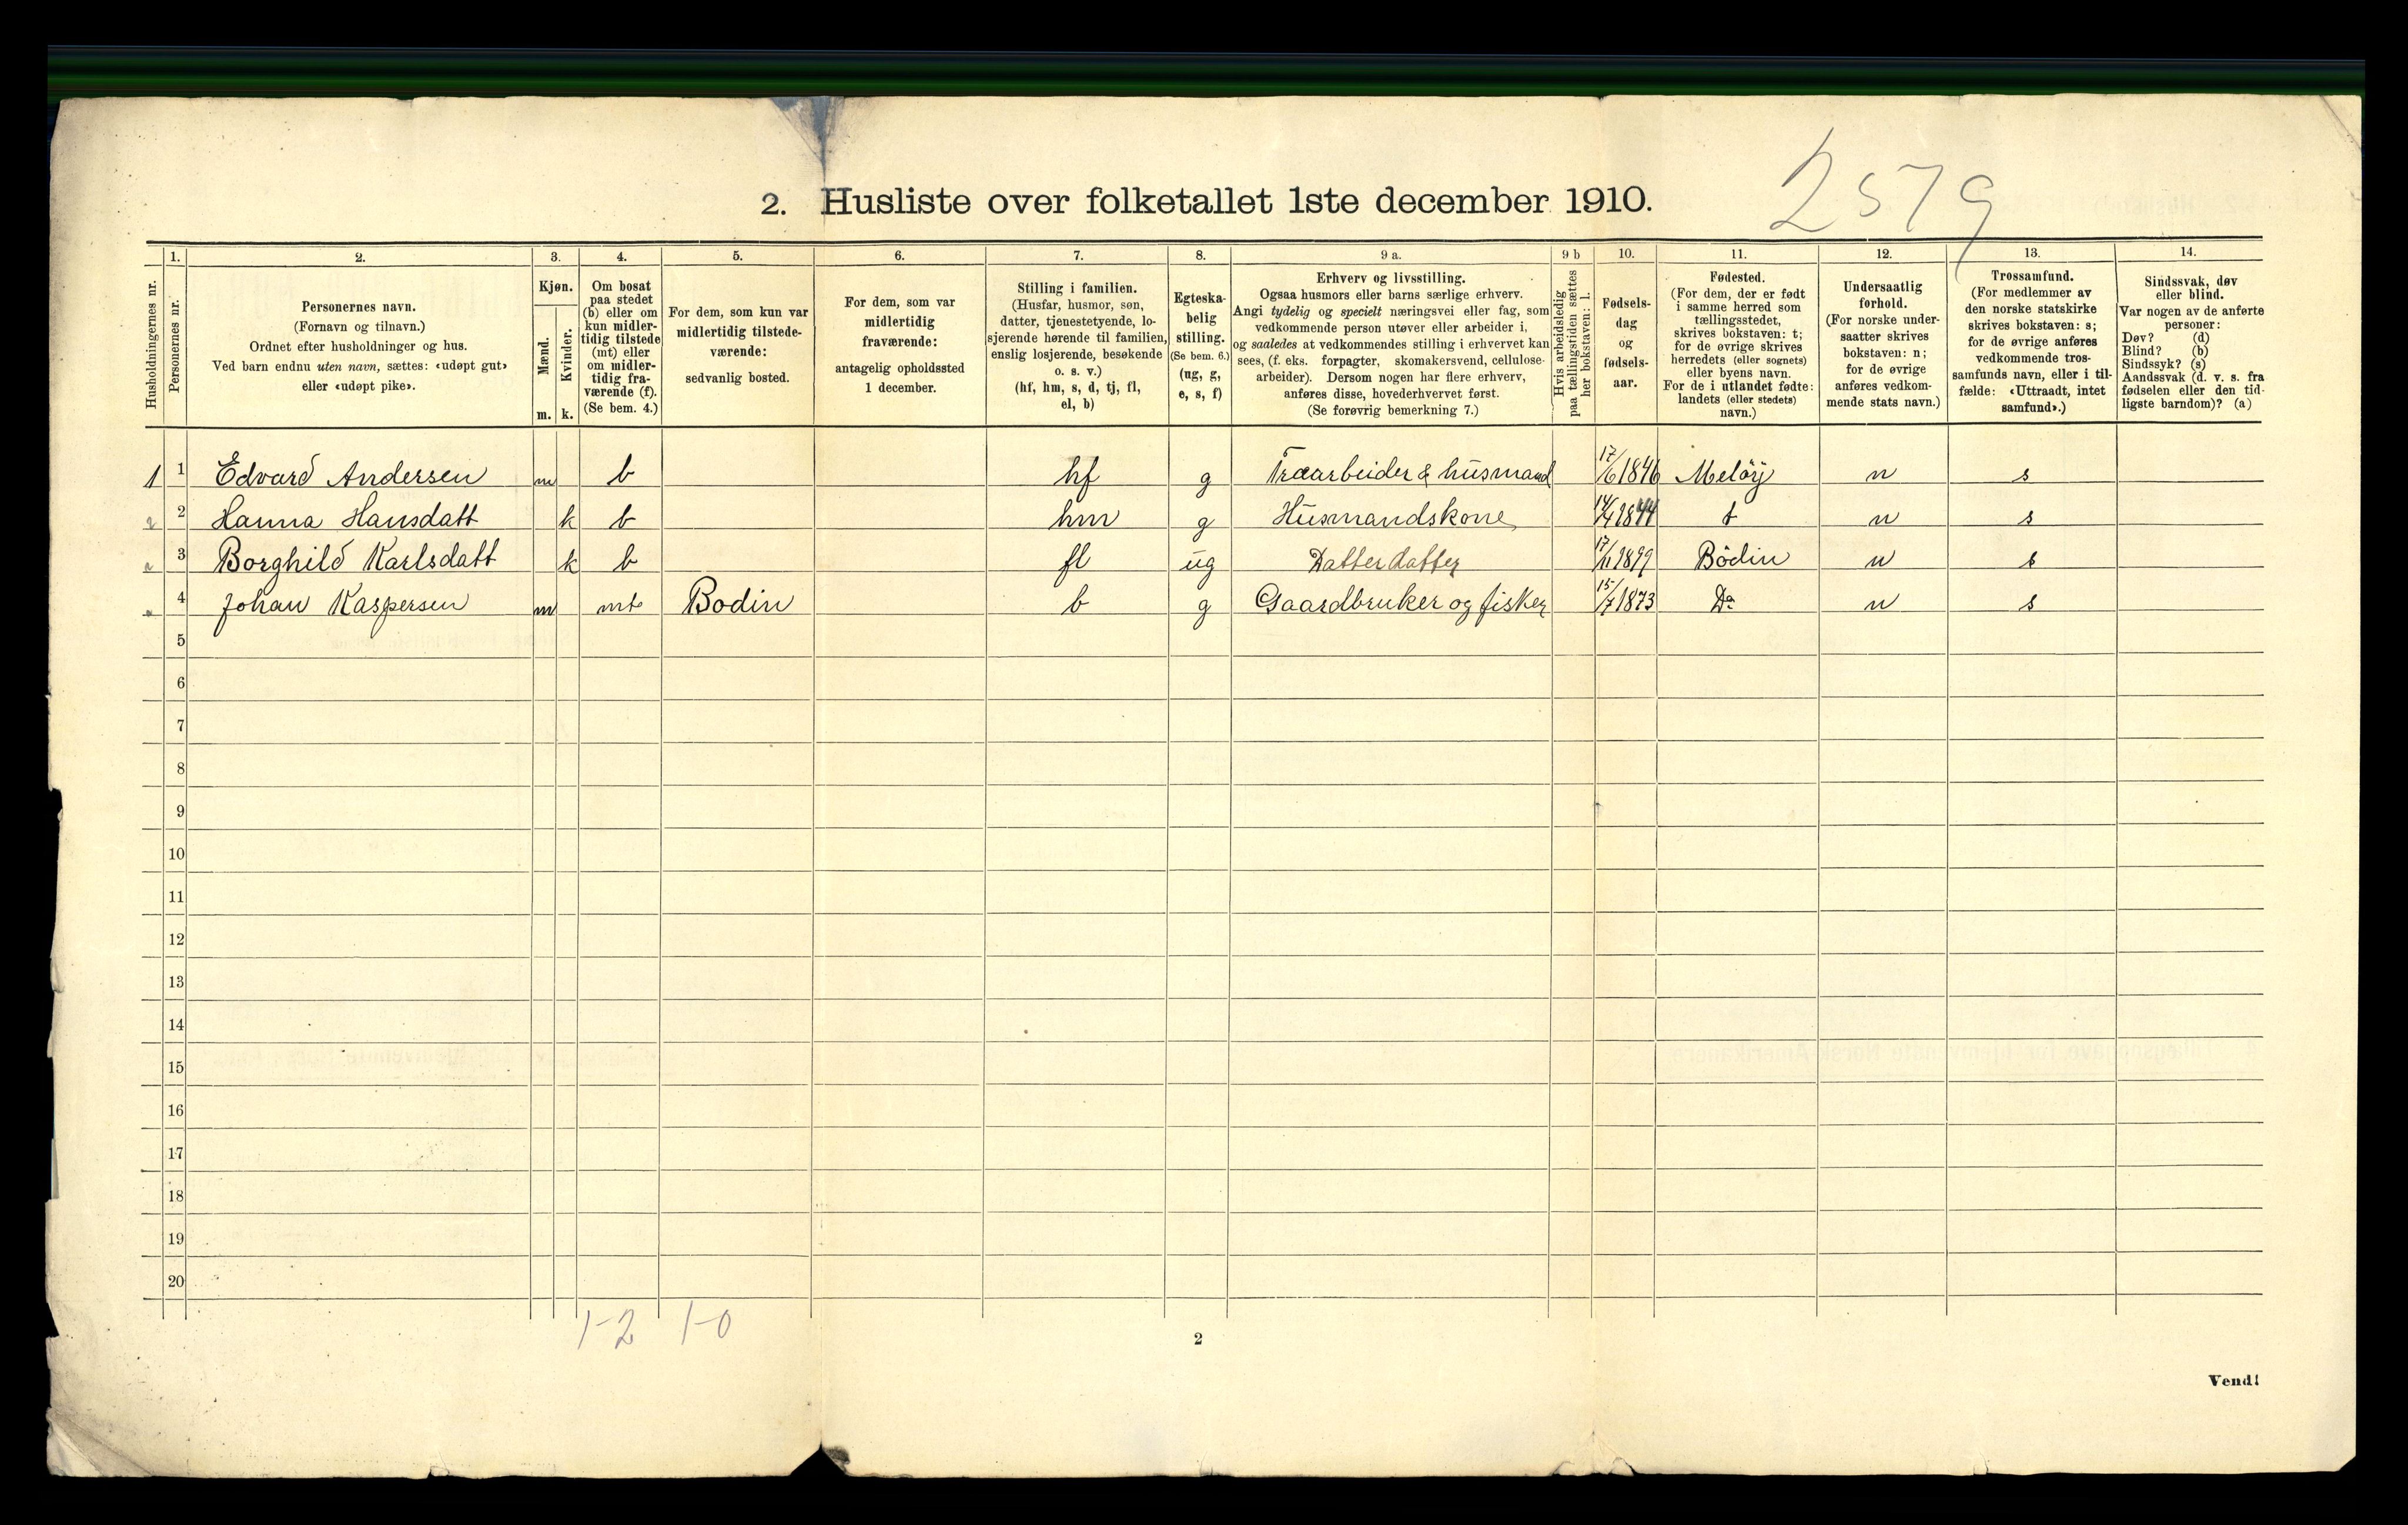 2579
2. Husliste over folketallet 1ste december 1910.
1. 2. 3. 4. 5. 6. 7. 8. 9 a. 9 b 10. 11. 12. 13. 14.
Husholdningernes nr.
Personernes nr.
Personernes navn.
(Fornavn og tilnavn.)
Ordnet efter husholdninger og hus.
Ved barn endnu uten navn, sættes: «udøpt gut»
eller «udøpt pike».
Kjøn.
Mænd.
m.
Kvinder.
k.
Om bosat
paa stedet
(b) eller om
kun midler-
tidig tilstede
(mt) eller
om midler-
tidig fra-
værende (f).
(Se bem. 4.)
For dem, som kun var
midlertidig tilstede-
værende:
sedvanlig bosted.
For dem, som var
midlertidig
fraværende:
antagelig opholdssted
1 december.
Stilling i familien.
(Husfar, husmor, søn,
datter, tjenestetyende, lo-
sjerende hørende til familien,
enslig losjerende, besøkende
o. s. v.)
(hf, hm, s, d, tj, fl,
el, b)
Egteska-
belig
stilling.
(Se bem. 6.)
(ug, g,
e, s, f)
Erhverv og livsstilling.
Ogsaa husmors eller barns særlige erhverv.
Angi tydelig og specielt næringsvei eller fag, som
vedkommende person utøver eller arbeider i,
og saaledes at vedkommendes stilling i erhvervet kan
sees, (f. eks. forpagter, skomakersvend, cellulose-
arbeider). Dersom nogen har flere erhverv,
anføres disse, hovederhvervet først.
(Se forøvrig bemerkning 7.)
Hvis arbeidsledig
paa tællingstiden sættes
her bokstaven: l.
Fødsels-
dag
og
fødsels-
aar.
Fødested.
(For dem, der er født
i samme herred som
tællingsstedet,
skrives bokstaven: t;
for de øvrige skrives
herredets (eller sognets)
eller byens navn.
For de i utlandet fødte:
landets (eller stedets)
navn.)
Undersaatlig
forhold.
(For norske under-
saatter skrives
bokstaven: n;
for de øvrige
anføres vedkom-
mende stats navn.)
Trossamfund.
(For medlemmer av
den norske statskirke
skrives bokstaven: s;
for de øvrige anføres
vedkommende tros-
samfunds navn, eller i til-
fælde: «Uttraadt, intet
samfund».)
Sindssvak, døv
eller blind.
Var nogen av de anførte
personer:
Døv? (d)
Blind? (b)
Sindssyk? (s)
Aandssvak (d. v. s. fra
fødselen eller den tid-
ligste barndom)? (a)
1 1 Edvard Andersen m b hf g Træarbeider & husmand 17/6 1846 Meløy n s
2 Hanna Hansdatt k b hm g Husmandskone 14/4 1844 t n s
3 Borghild Karlsdatt k b fl ug Datterdatter 17/11 1899 Bodin n s
4 Johan Kaspersen m mt Bodin b g Gaardbruker og fisker 15/7 1873 Do n s
5
6
7
8
9
10
11
12
13
14
15
16
17
18
19
20
1-2 1-0
2
Vend!